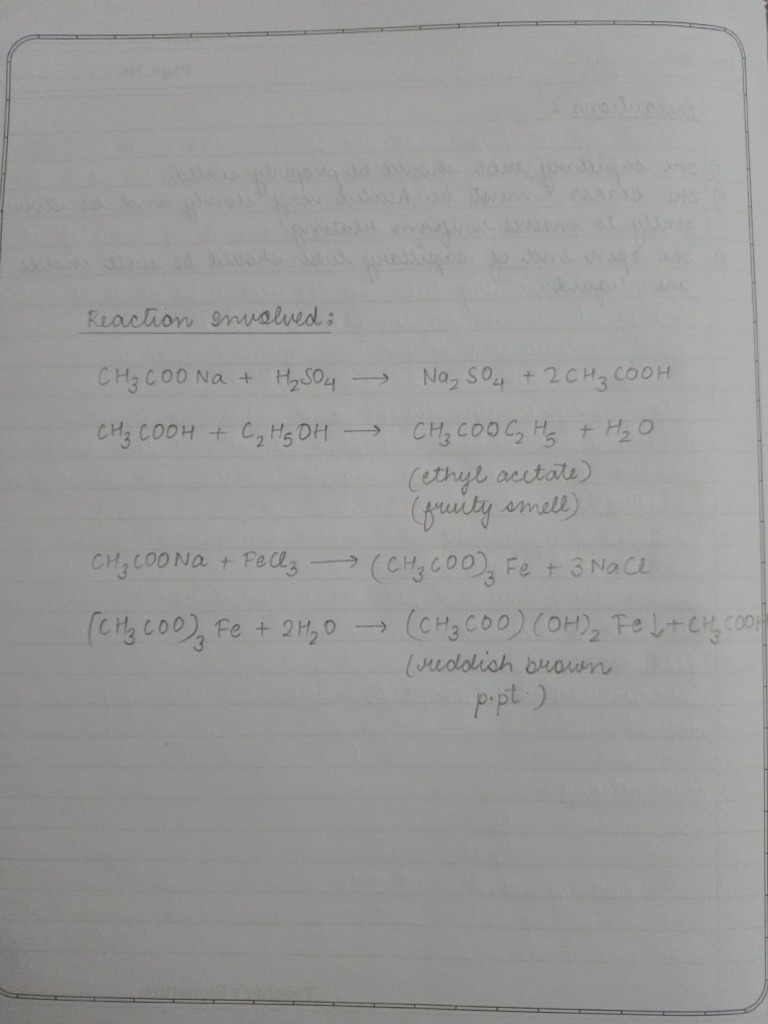 Reaction involved:
CH₃COONa + H₂SO₄ → Na₂SO₄ + 2CH₃COOH
CH₃COOH + C₂H₅OH → CH₃COOC₂H₅ + H₂O
(ethyl acetate)
(fruity smell)
CH₃COONa + FeCl₃ → (CH₃COO)₃Fe + 3NaCl
(CH₃COO)₃Fe + 2H₂O → (CH₃COO)(OH)₂Fe↓ + CH₃COOH
(reddish brown
p.pt.)